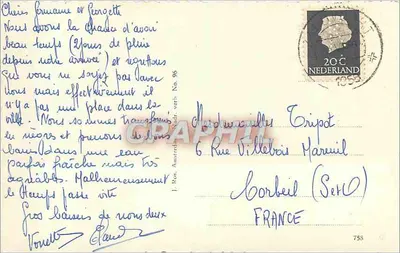 Chères Germaine et Georgette
Nous avons la chance d'avoir
beau temps (2 jours de pluie
depuis notre arrivée) et regrettons
que vous ne soyez pas avec
nous mais effectivement il
n'y a pas une place dans la
ville. Nous sommes transformés
en nègres et prenons de bons
bains dans une eau
parfois fraîche mais très
agréable. Malheureusement
le temps passe vite
Gros baisers de nous deux
Nº 96
CRAPHIL
20 C
NEDERLAND
Mesdemoiselles Tripot
6 Rue Villebois Mareuil
Corbeil (S et O)
FRANCE
758